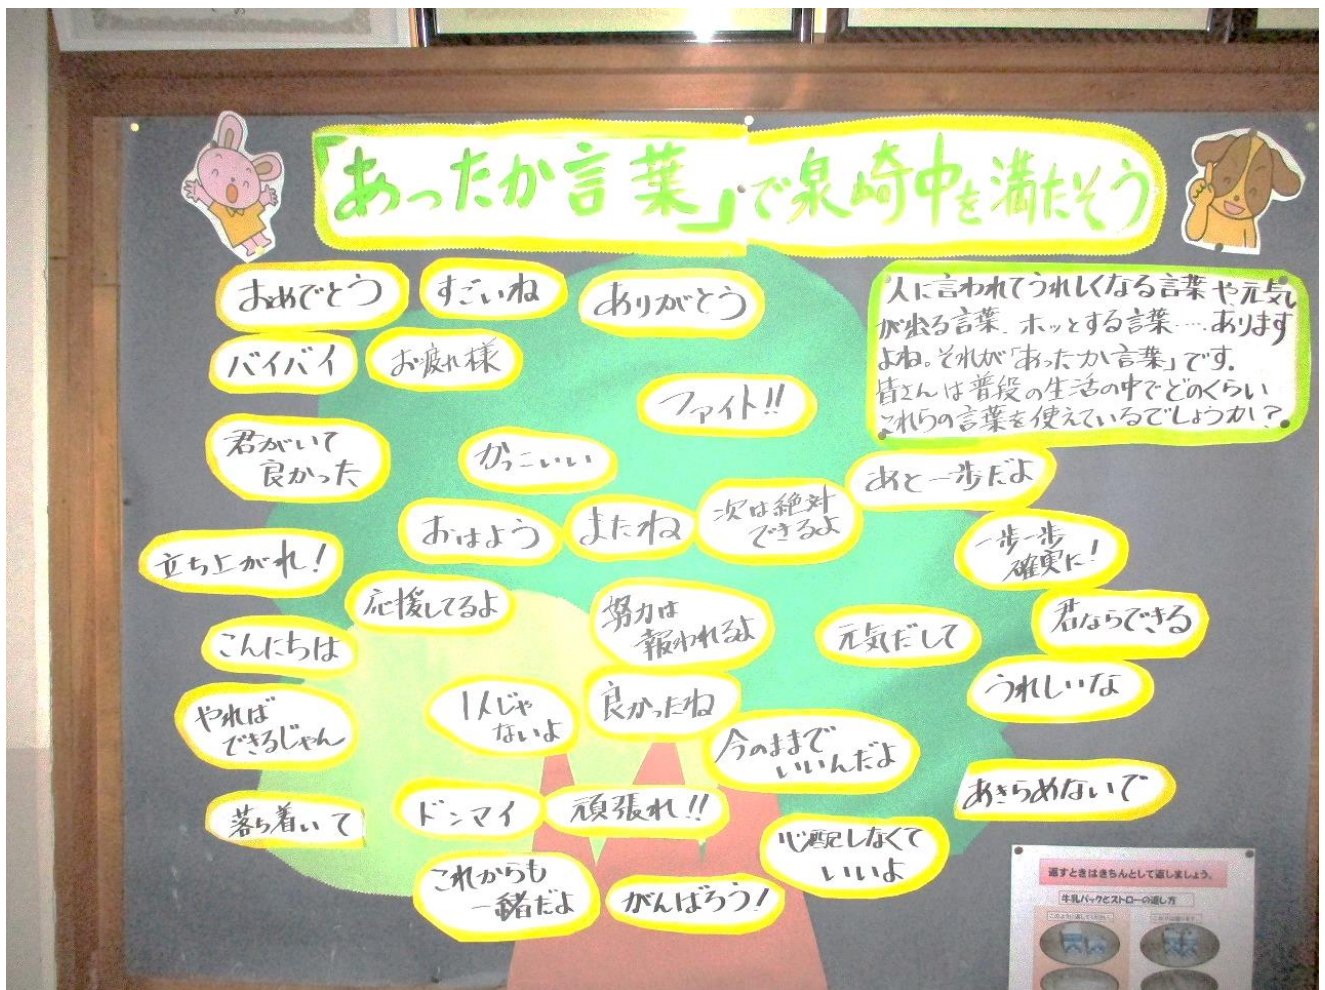 「あったか言葉」で泉崎中を満たそう
人に言われてうれしくなる言葉や元気
が出る言葉、ホッとする言葉……あります
よね。それが「あったか言葉」です。
皆さんは普段の生活の中でどのくらい
これらの言葉を使えているでしょうか？
おめでとう
すごいね
ありがとう
バイバイ
お疲れ様
ファイト!!
君がいて
良かった
かっこいい
あと一歩だよ
おはよう
またね
次は絶対
できるよ
一歩一歩
確実に!
立ち上がれ!
応援してるよ
努力は
報われるよ
元気だして
君ならできる
こんにちは
うれしいな
やれば
できるじゃん
1人じゃ
ないよ
良かったね
今のままで
いいんだよ
あきらめないで
落ち着いて
ドンマイ
頑張れ!!
心配しなくて
いいよ
これからも
一緒だよ
がんばろう!
返すときはきちんとして返しましょう。
牛乳パックとストローの返し方